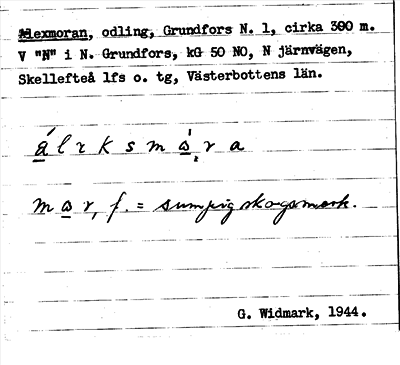 Alexmoran, odling, Grundfors N. 1, cirka 300 m.
V "N" i N. Grundfors, kG 50 NO, N järnvägen,
Skellefteå lfs o. tg, Västerbottens län.
a l r k s m ω r a
m ω r, f. = sumpig skogsmark.
G. Widmark, 1944.